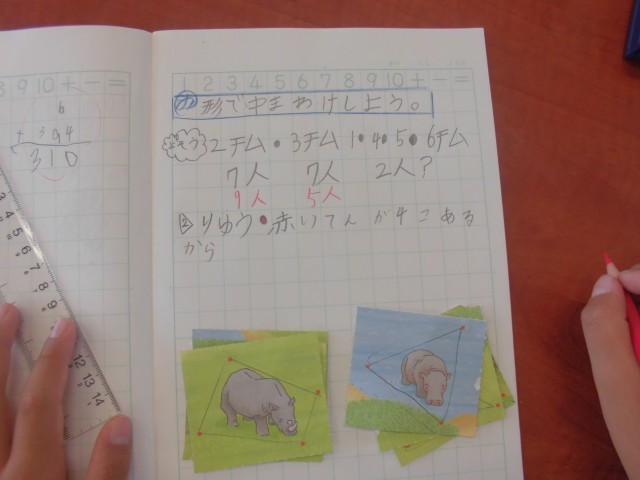 1 2 3 4 5 6 7 8 9 10 + - =
め 形で中まわけしよう。
よそう 2チム・3チム 1・4・5・6チム
7人 7人 2人?
9人 5人
り りゆう・赤いてんが4こある
から
8 9 10 + - =
6
+ 394
310
3 4 5 6 7 8 9
12 13 14